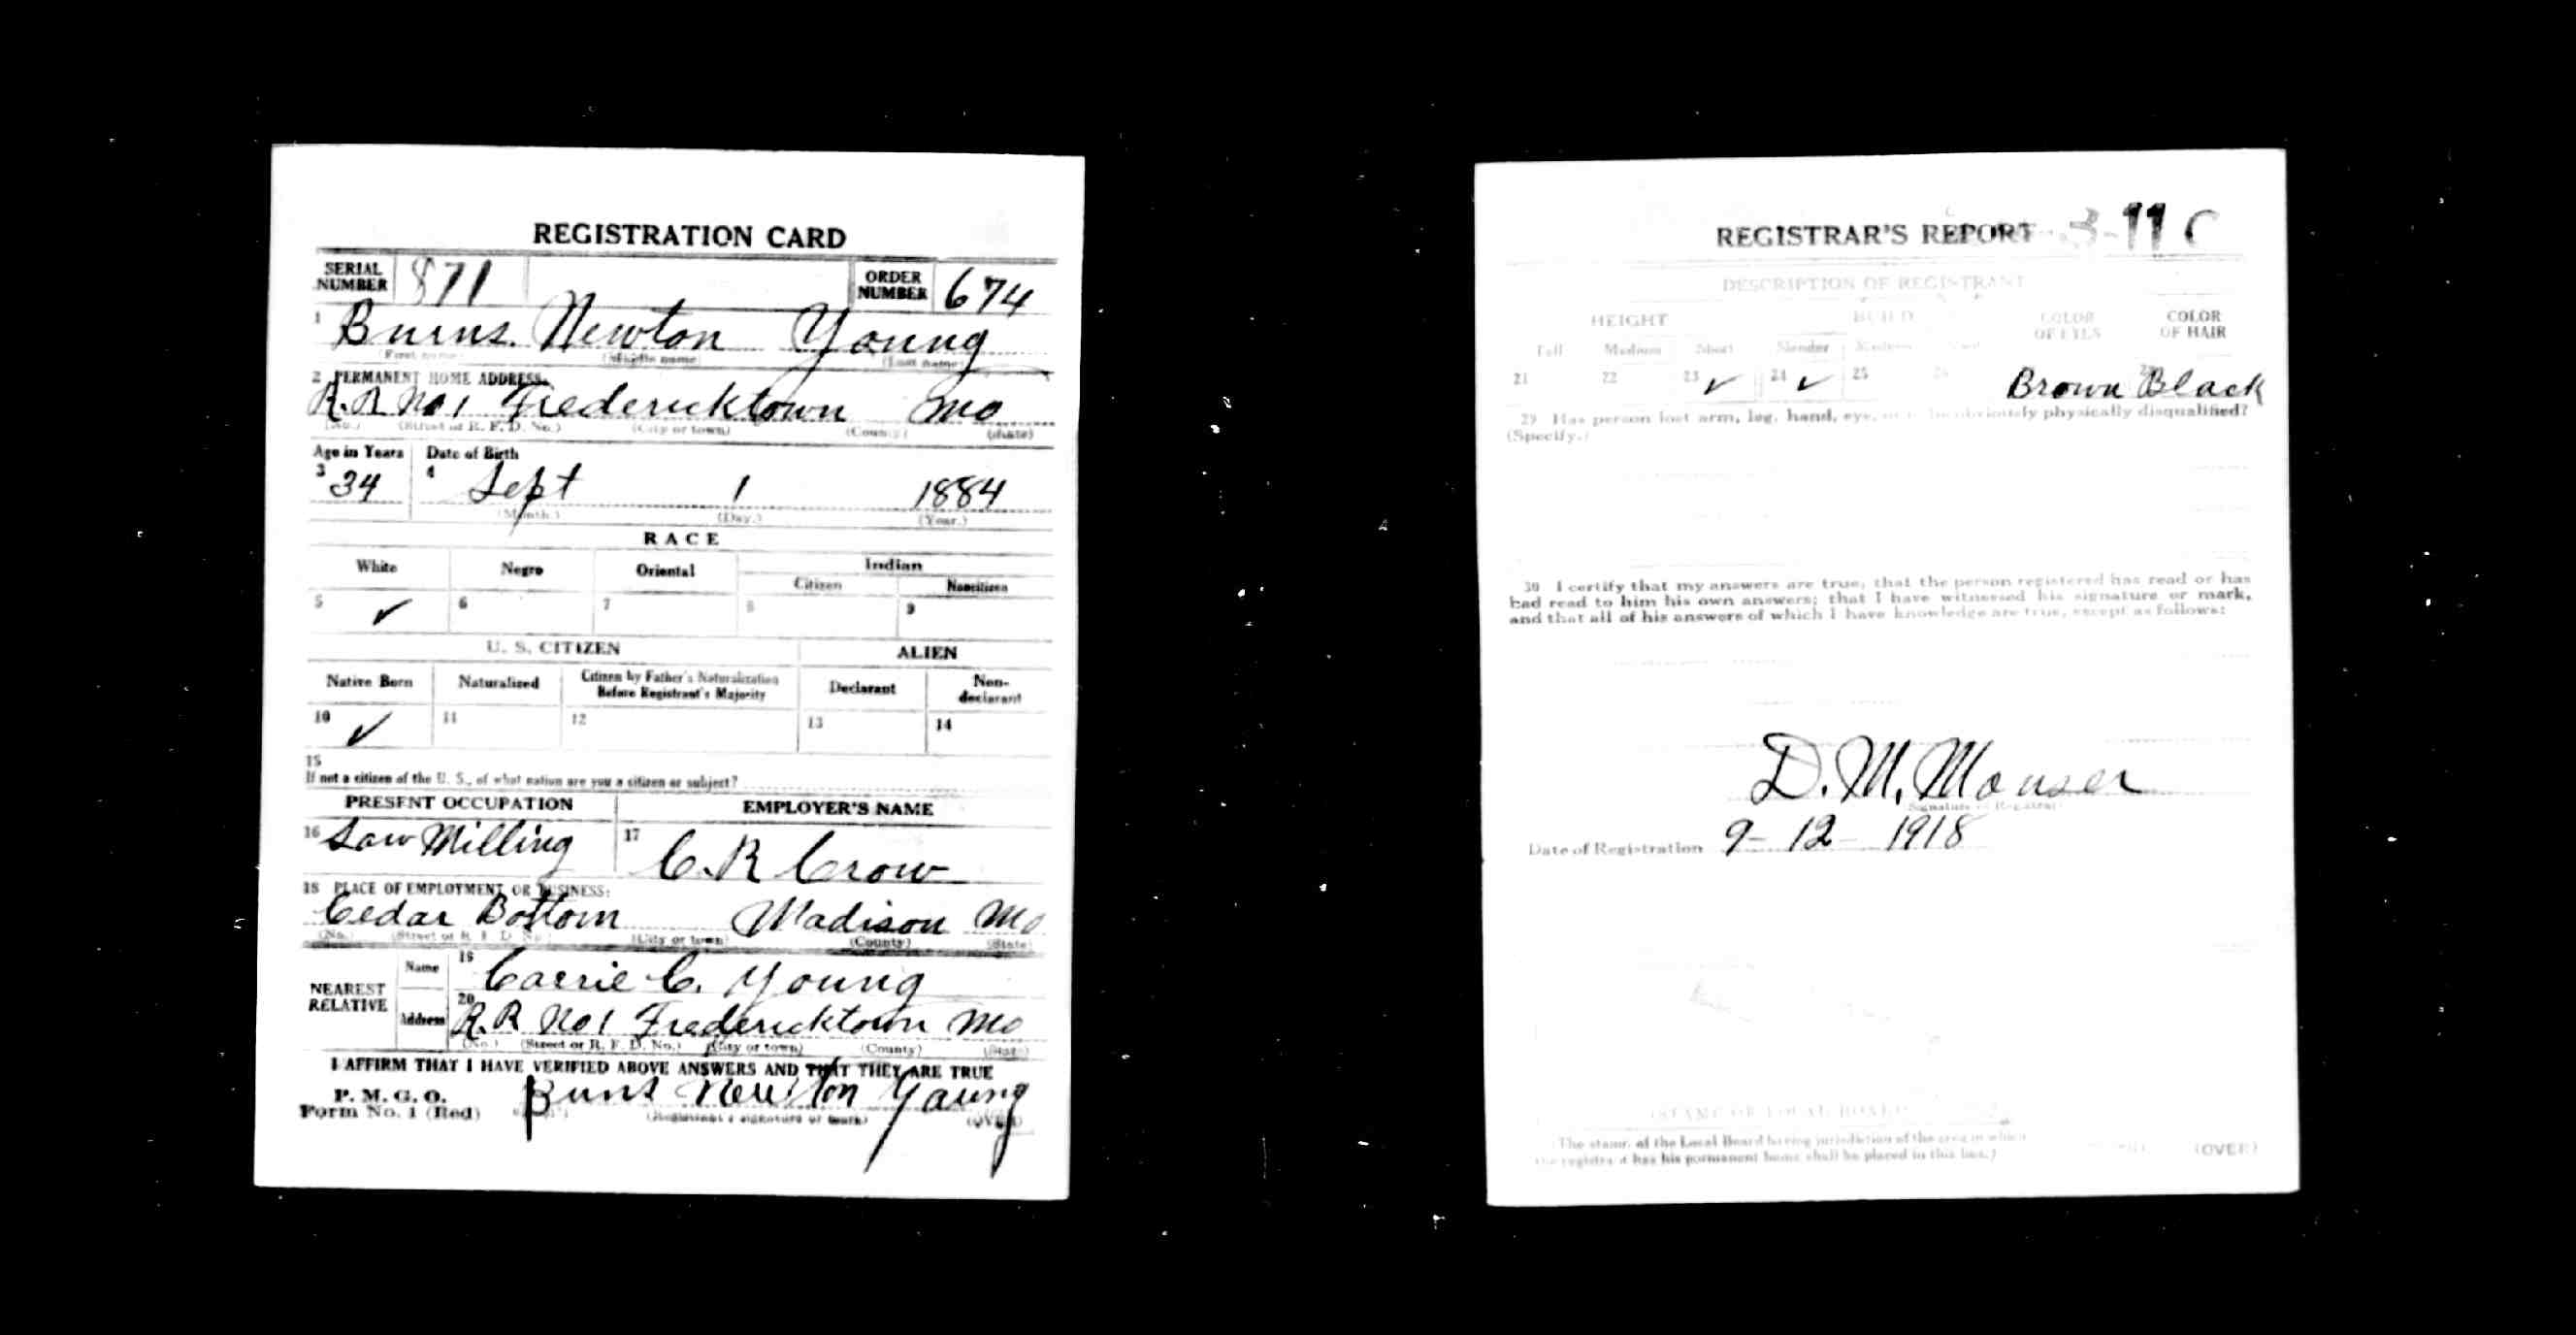 REGISTRATION CARD
SERIAL NUMBER 871 ORDER NUMBER 674
1 Burns. Newton Young
(First name) (Middle name) (Last name)
2 PERMANENT HOME ADDRESS:
R.R No 1 Fredericktown Mo
(No.) (Street or R. F. D. No.) (City or town) (County) (State)
Age in Years Date of Birth
3 34 4 Sept 1 1884
(Month.) (Day.) (Year.)
RACE
White Negro Oriental Indian
Citizen Noncitizen
5 ✓ 6 7 8 9
U. S. CITIZEN ALIEN
Native Born Naturalized Citizen by Father's Naturalization Before Registrant's Majority Declarant Non-declarant
10 ✓ 11 12 13 14
15
If not a citizen of the U. S., of what nation are you a citizen or subject?
PRESENT OCCUPATION EMPLOYER'S NAME
16 Saw Milling 17 C. R Crow
18 PLACE OF EMPLOYMENT OR BUSINESS:
Cedar Bottom Madison Mo
(No.) (Street or R. F. D. No.) (City or town) (County) (State)
NEAREST RELATIVE Name 19 Carrie C. Young
Address 20 R.R No 1 Fredericktown Mo
(No.) (Street or R. F. D. No.) (City or town) (County) (State)
I AFFIRM THAT I HAVE VERIFIED ABOVE ANSWERS AND THAT THEY ARE TRUE
P. M. G. O.
Form No. 1 (Red) Burns Newton Young
(Registrant's signature or mark) (OVER)
REGISTRAR'S REPORT 3-11 C
DESCRIPTION OF REGISTRANT
HEIGHT BUILD COLOR OF EYES COLOR OF HAIR
Tall Medium Short Slender Medium Stout
21 22 23 ✓ 24 ✓ 25 26 Brown Black
29 Has person lost arm, leg, hand, eye, or is he obviously physically disqualified?
(Specify.)
30 I certify that my answers are true; that the person registered has read or has
had read to him his own answers; that I have witnessed his signature or mark,
and that all of his answers of which I have knowledge are true, except as follows:
D. M. Mouser
(Signature of Registrar)
Date of Registration 9-12-1918
(STAMP OF LOCAL BOARD)
(The stamp of the Local Board having jurisdiction of the area in which
the registrant has his permanent home shall be placed in this box.)
(OVER)